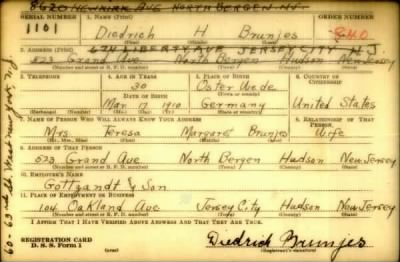 8620 Newkirk Ave North Bergen N.J.
SERIAL NUMBER 1. NAME (Print) ORDER NUMBER
1101 Diedrich H Brunjes 840
(First) (Middle) (Last)
2. ADDRESS (Print) 674 Liberty Ave Jersey City N.J.
523 Grand Ave North Bergen Hudson New Jersey
(Number and street or R. F. D. number) (Town) (County) (State)
3. TELEPHONE 4. AGE IN YEARS 5. PLACE OF BIRTH 6. COUNTRY OF CITIZENSHIP
30 Oster Wede
DATE OF BIRTH
Mar 17 1910 Germany United States
(Exchange) (Number) (Mo.) (Day) (Yr.) (State or country)
7. NAME OF PERSON WHO WILL ALWAYS KNOW YOUR ADDRESS 8. RELATIONSHIP OF THAT PERSON
Mrs. Teresa Margaret Brunjes Wife
(Mr., Mrs., Miss) (First) (Middle) (Last)
9. ADDRESS OF THAT PERSON
523 Grand Ave North Bergen Hudson New Jersey
(Number and street or R. F. D. number) (Town) (County) (State)
10. EMPLOYER'S NAME
Gottzandt & Son
11. PLACE OF EMPLOYMENT OR BUSINESS
104 Oakland Ave Jersey City Hudson New Jersey
(Number and street or R. F. D. number) (Town) (County) (State)
I AFFIRM THAT I HAVE VERIFIED ABOVE ANSWERS AND THAT THEY ARE TRUE.
REGISTRATION CARD
D. S. S. Form 1 Diedrich Brunjes
(over) (Registrant's signature)
60-63rd St West New York N.J.